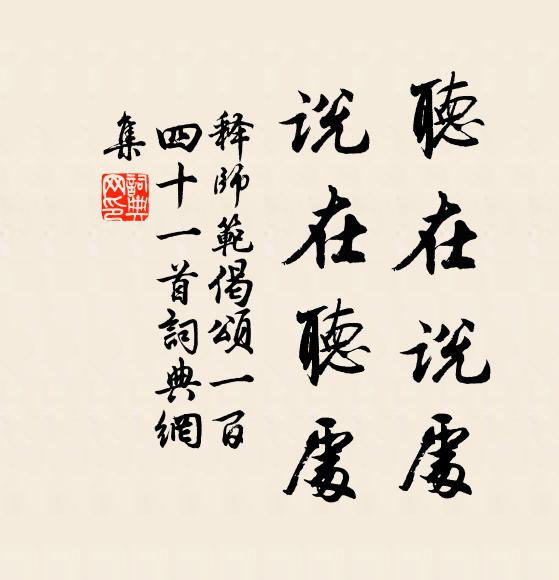 聽在説處
説在聽處
釋師範偈頌一百
四十一首詞典網
集
詞典網印